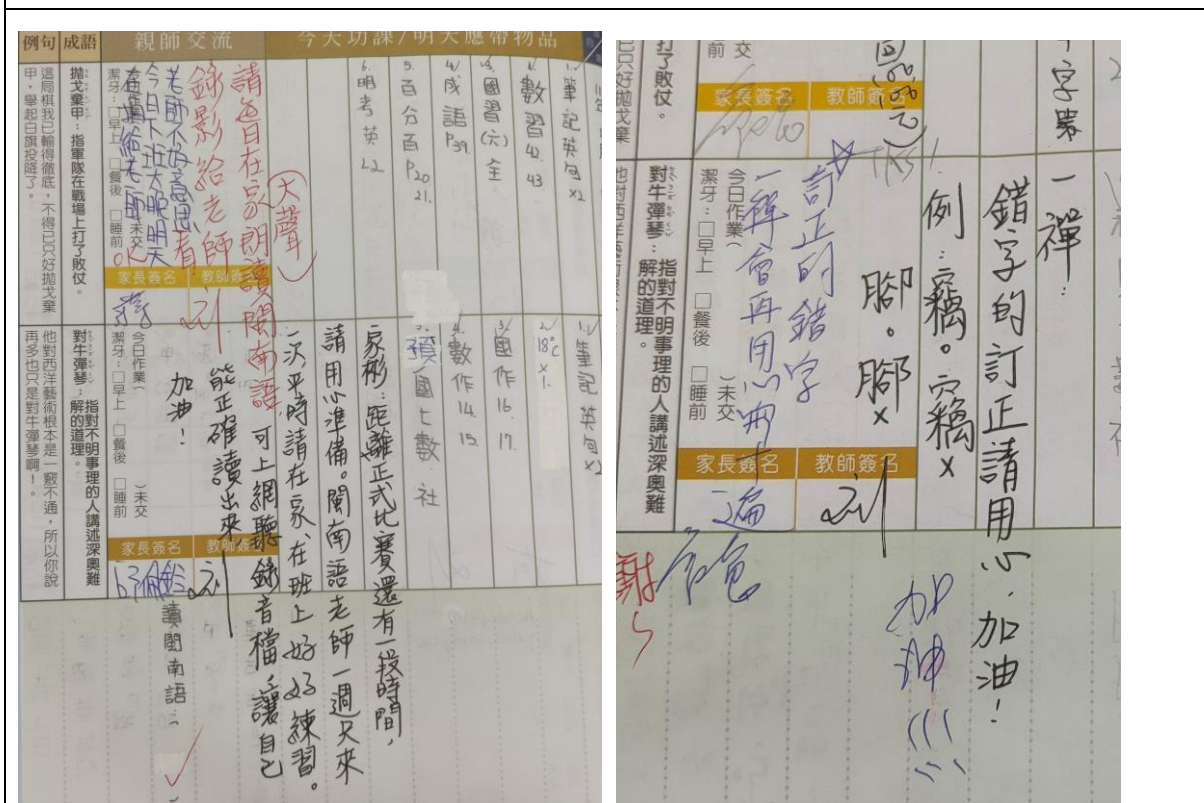 今天功課/明天應帶物品
1.筆記英句x2
2.數習42.43
3.國習(六)全
4.成語P39.
5.百分百P20
21.
6.明考英L2
請每日在家朗讀閩南語
(大聲)
錄影給老師看
親師交流
老師不好意思,
今日下班太晚,明天
給老師
OK
今日作業( )未交
潔牙:□早上 □餐後 □睡前
家長簽名
教師簽名
成語
拋戈棄甲:指軍隊在戰場上打了敗仗。
例句
這局棋我已輸得徹底,不得已只好拋戈棄
甲,舉起白旗投降了。
1.筆記英句x2
2.18°C x1.
3.國作16.17.
4.數作14.15.
5.預/國七數.社
家彬:距離正式比賽還有一段時間,
請用心準備。閩南語老師一週只來
一次,平時請在家、在班上好好練習。
可上網聽錄音檔,讓自己
能正確讀出來,
加油!
讀閩南語:
今日作業( )未交
潔牙:□早上 □餐後 □睡前
家長簽名
教師簽名
對牛彈琴:指對不明事理的人講述深奧難
解的道理。
他對西洋藝術根本是一竅不通,所以你說
再多也只是對牛彈琴啊!。
家長簽名
教師簽名
打了敗仗。
已只好拋戈棄
一禪:
錯字的訂正請用心.加油!
例:竊。
腳。腳x
訂正的錯字
一禪會再用心
遍
加油!!!
今日作業( )未交
潔牙:□早上 □餐後 □睡前
家長簽名
教師簽名
對牛彈琴:指對不明事理的人講述深奧難
解的道理。
謝